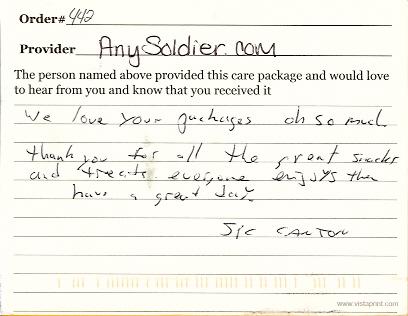 Order# 442
Provider AnySoldier.com
The person named above provided this care package and would love
to hear from you and know that you received it
We love your packages oh so much
thank you for all the great snacks
and treats. everyone enjoys them
have a great day.
CANTON
www.vistaprint.com